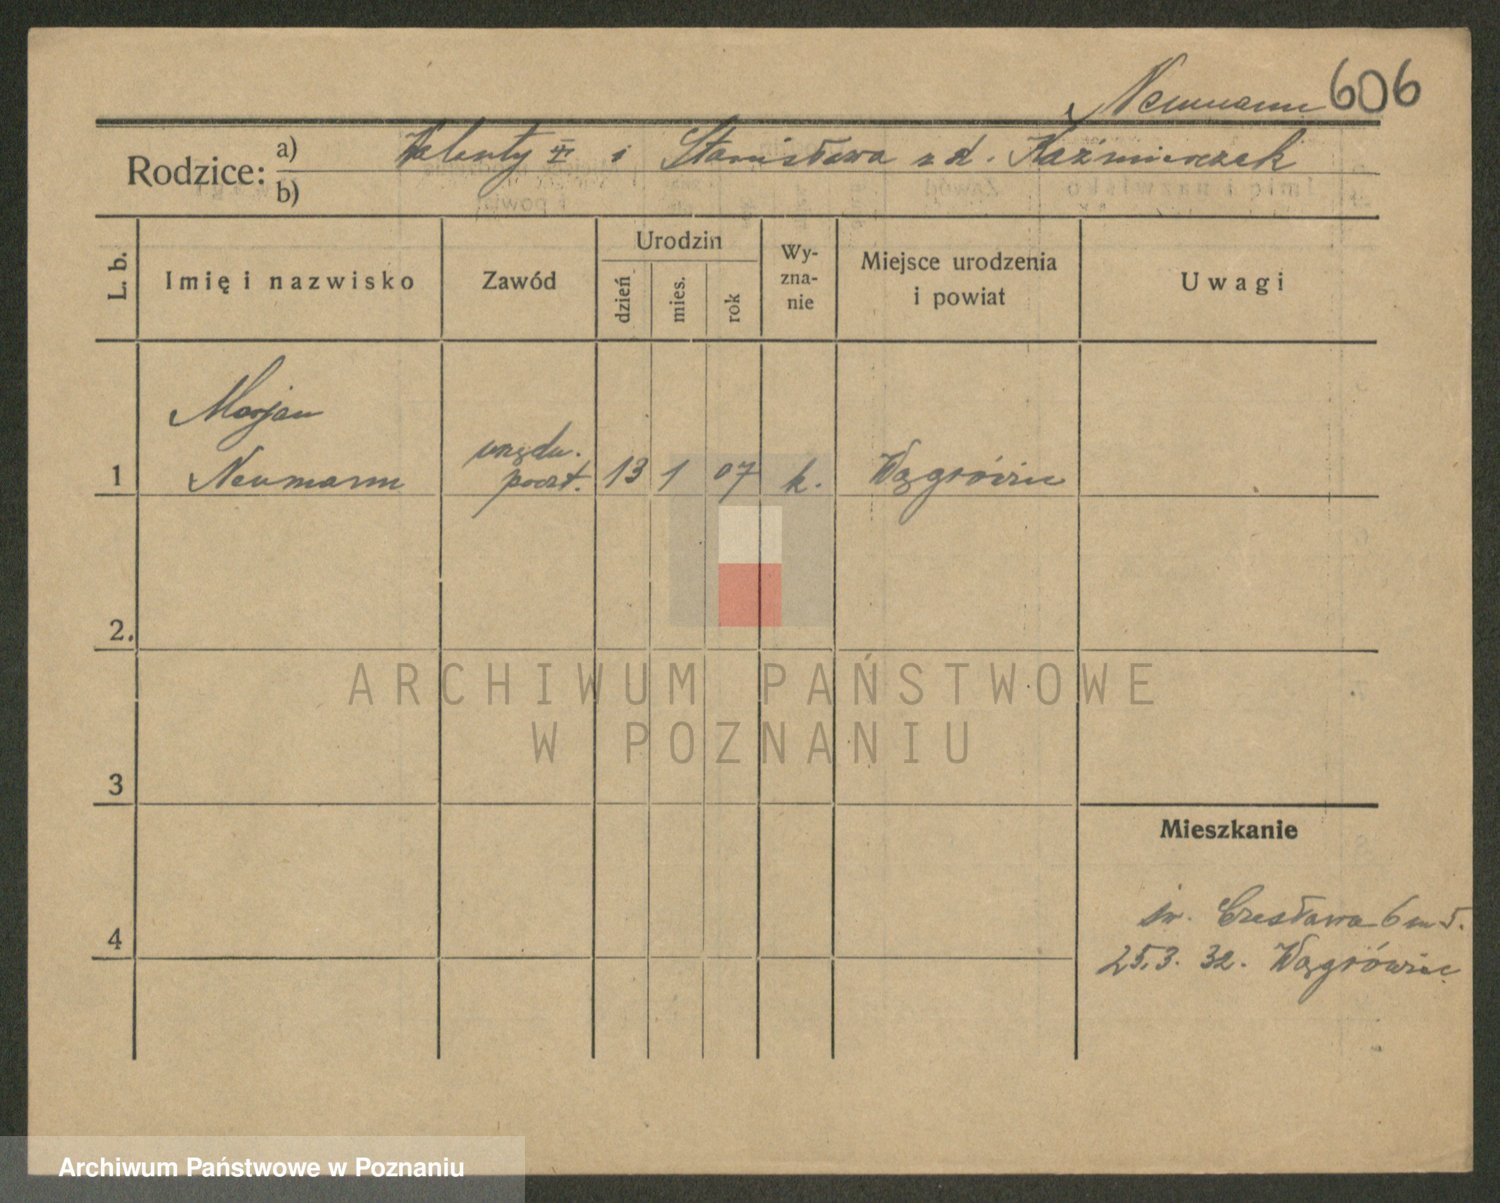 Neumann 606
Rodzice: a) Walenty i Stanisława z d. Kaźmierczak
b)
L. b.
Imię i nazwisko
Zawód
Urodzin
dzień
mies.
rok
Wy-
zna-
nie
Miejsce urodzenia
i powiat
Uwagi
1
Marjan
Neumann
urzędn.
poczt.
13 1 07 k. Wągrówiec
2.
3
4
Mieszkanie
św. Czesława 6 m 5.
25.3. 32. Wągrówiec
ARCHIWUM PAŃSTWOWE
W POZNANIU
Archiwum Państwowe w Poznaniu